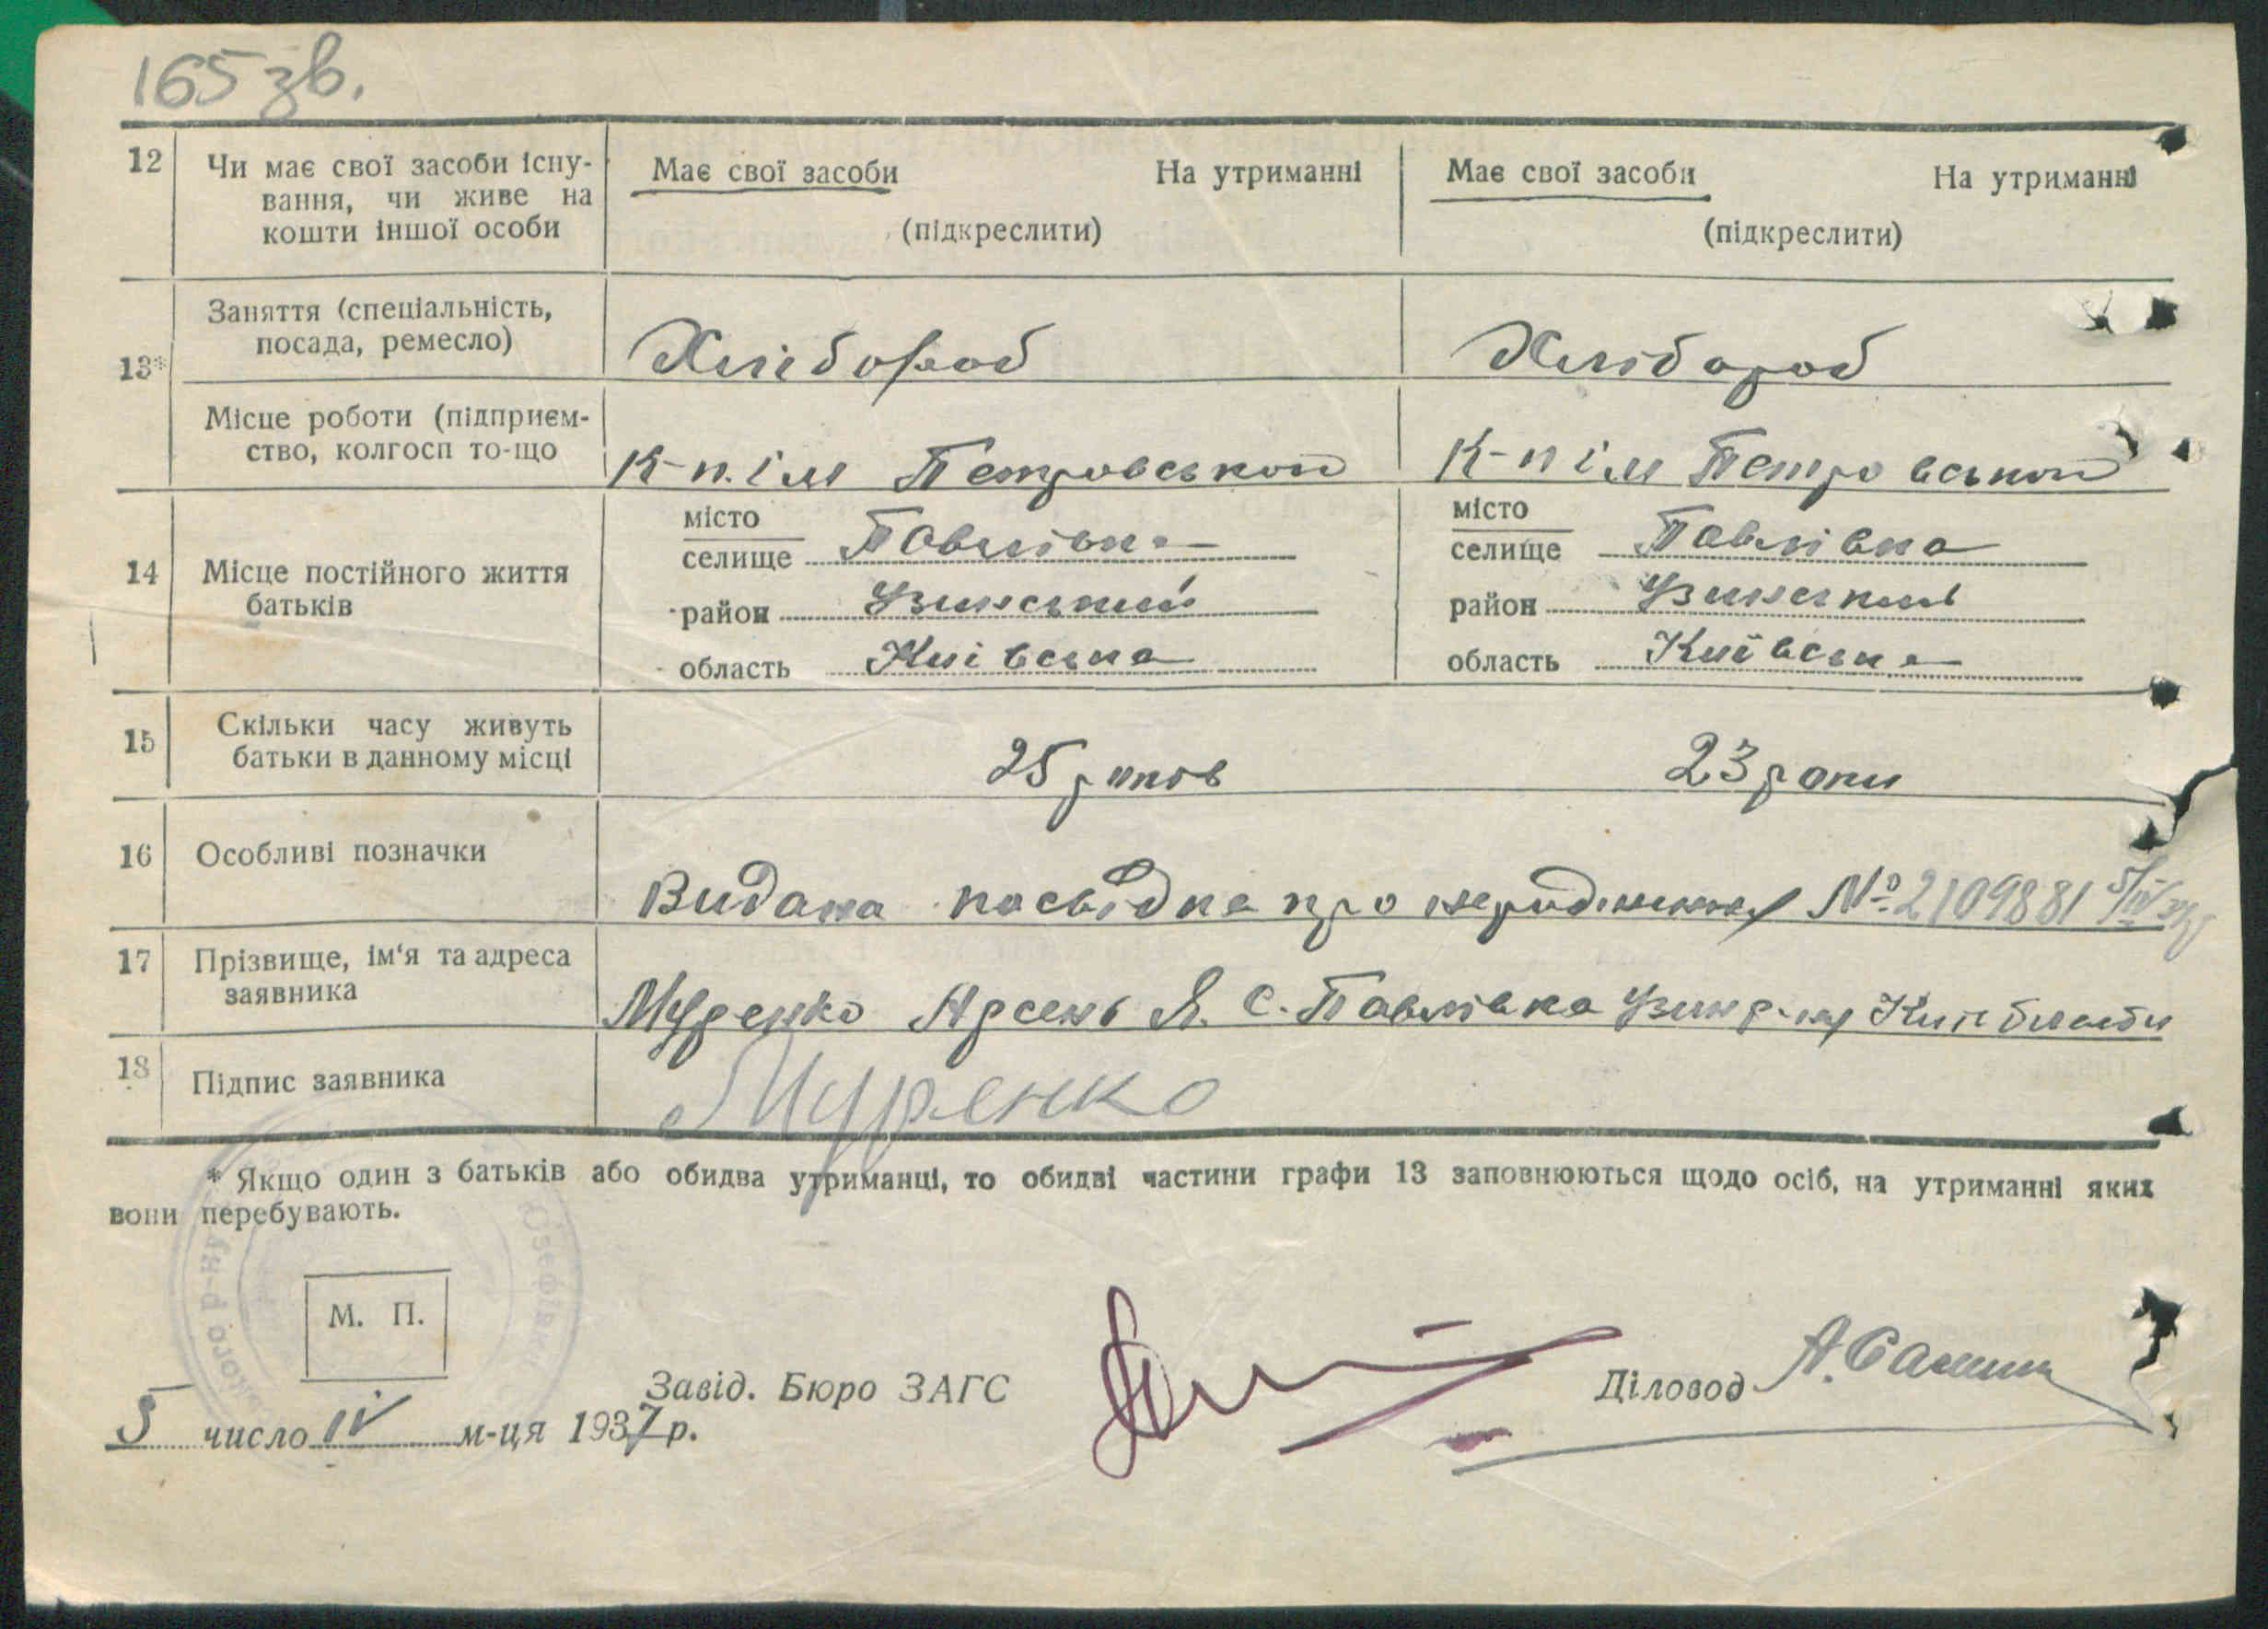 165 зв.
12 Чи має свої засоби існу-
вання, чи живе на
кошти іншої особи
Має свої засоби На утриманні
(підкреслити)
Має свої засоби На утриманні
(підкреслити)
13*
Заняття (спеціальність,
посада, ремесло)
Хлібороб
Хлібороб
Місце роботи (підприєм-
ство, колгосп то-що
К-п. ім Петровського
К-п ім Петровського
14 Місце постійного життя
батьків
місто
селище Павлівка
район Узинський
область Київська
місто
селище Павлівка
район Узинський
область Київська
15 Скільки часу живуть
батьки в данному місці
25 років
23 роки
16 Особливі позначки
Видана посвідка про народження № 2109881 5/IV
17 Прізвище, ім'я та адреса
заявника
Муренко Арсень Я. С. Павлівка Узин р-ну Київ області
18 Підпис заявника
Муренко
* Якщо один з батьків або обидва утриманці, то обидві частини графи 13 заповнюються щодо осіб, на утриманні яких
вони перебувають.
М. П.
Завід. Бюро ЗАГС
Діловод
5 число IV м-ця 1937 р.